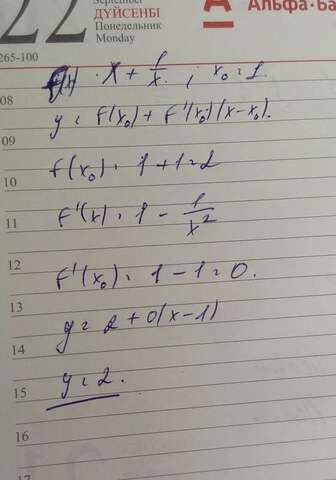 22 September
ДҮЙСЕНБІ
Понедельник
Monday
Альфа·Ба
265-100
f(x) = x + 1/x ; x₀ = 1.
08
y = f(x₀) + f'(x₀)(x-x₀).
09
f(x₀) = 1+1=2
10
f'(x) = 1 - 1/x²
11
12
f'(x₀) = 1-1=0.
13
y = 2+0(x-1)
14
y = 2.
15
16
17